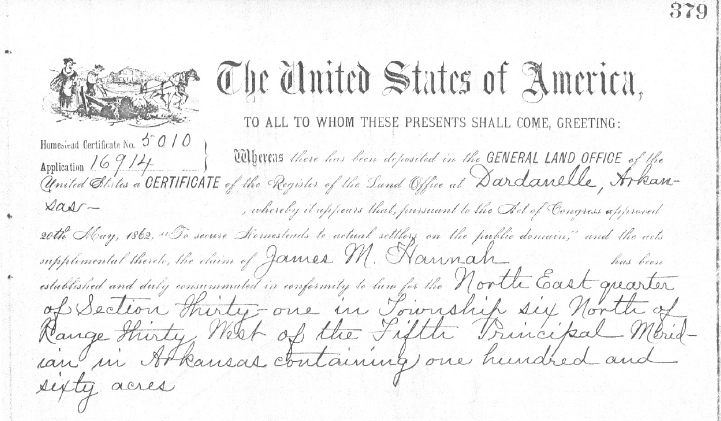 379
The United States of America,
TO ALL TO WHOM THESE PRESENTS SHALL COME, GREETING:
Homestead Certificate No. 5010
Application 16914
Whereas there has been deposited in the GENERAL LAND OFFICE of the
United States a CERTIFICATE of the Register of the Land Office at Dardanelle, Arkan-
sas- , whereby it appears that, pursuant to the Act of Congress approved
20th May, 1862, "To secure Homesteads to actual settlers on the public domain," and the acts
supplemental thereto, the claim of James M. Hannah has been
established and duly consummated in conformity to law for the North East quarter
of Section Thirty-one in Township six North of
Range Thirty West of the Fifth Principal Merid-
ian in Arkansas containing one hundred and
sixty acres